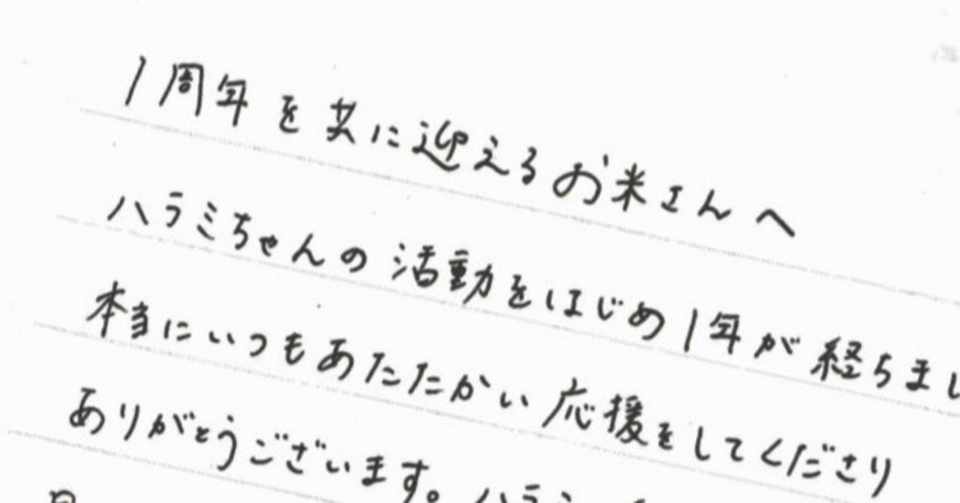 1周年を共に迎えるお米さんへ
ハラミちゃんの活動をはじめ1年が経ちまし
本当にいつもあたたかい応援をしてくださり
ありがとうございます。ハラミ